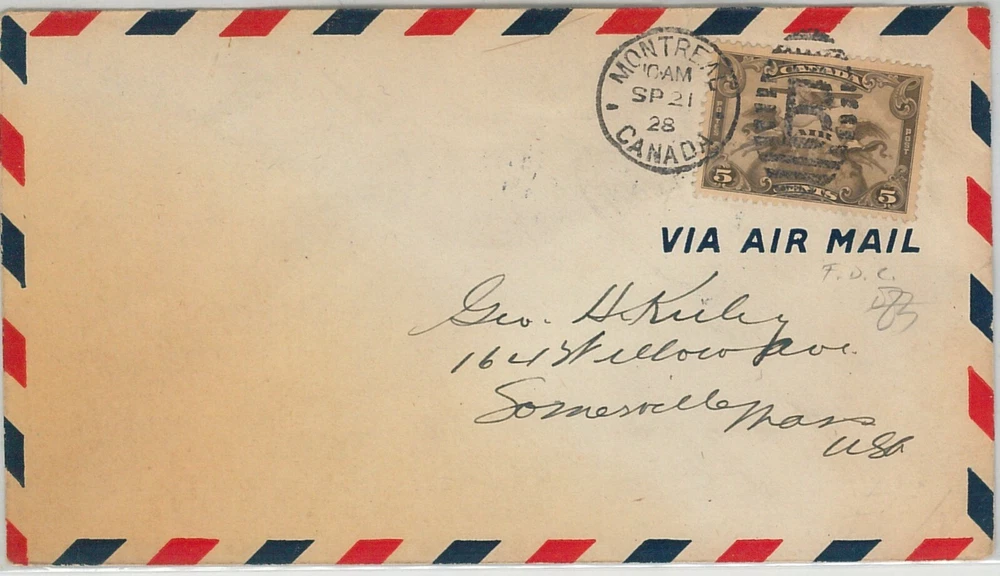 MONTREAL
10 AM
SP 21
28
CANADA
CANADA
POSTES
POST
AIR
5 CENTS 5
VIA AIR MAIL
F.D.C.
Geo. H. Kirby
164 Willow Ave.
Somerville Mass
USA